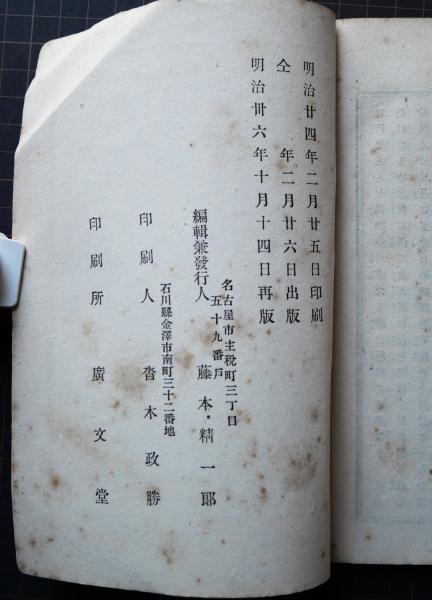 明治廿四年二月廿五日印刷
仝年二月廿六日出版
明治卅六年十月十四日再版
名古屋市主税町三丁目
五十九番戸
編輯兼發行人 藤本精一郎
石川縣金澤市南町三十二番地
印刷人 沓木政勝
印刷所 廣文堂